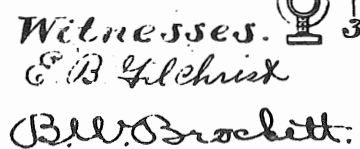 Witnesses.
3
E B Gilchrist
B. W. Brockett.